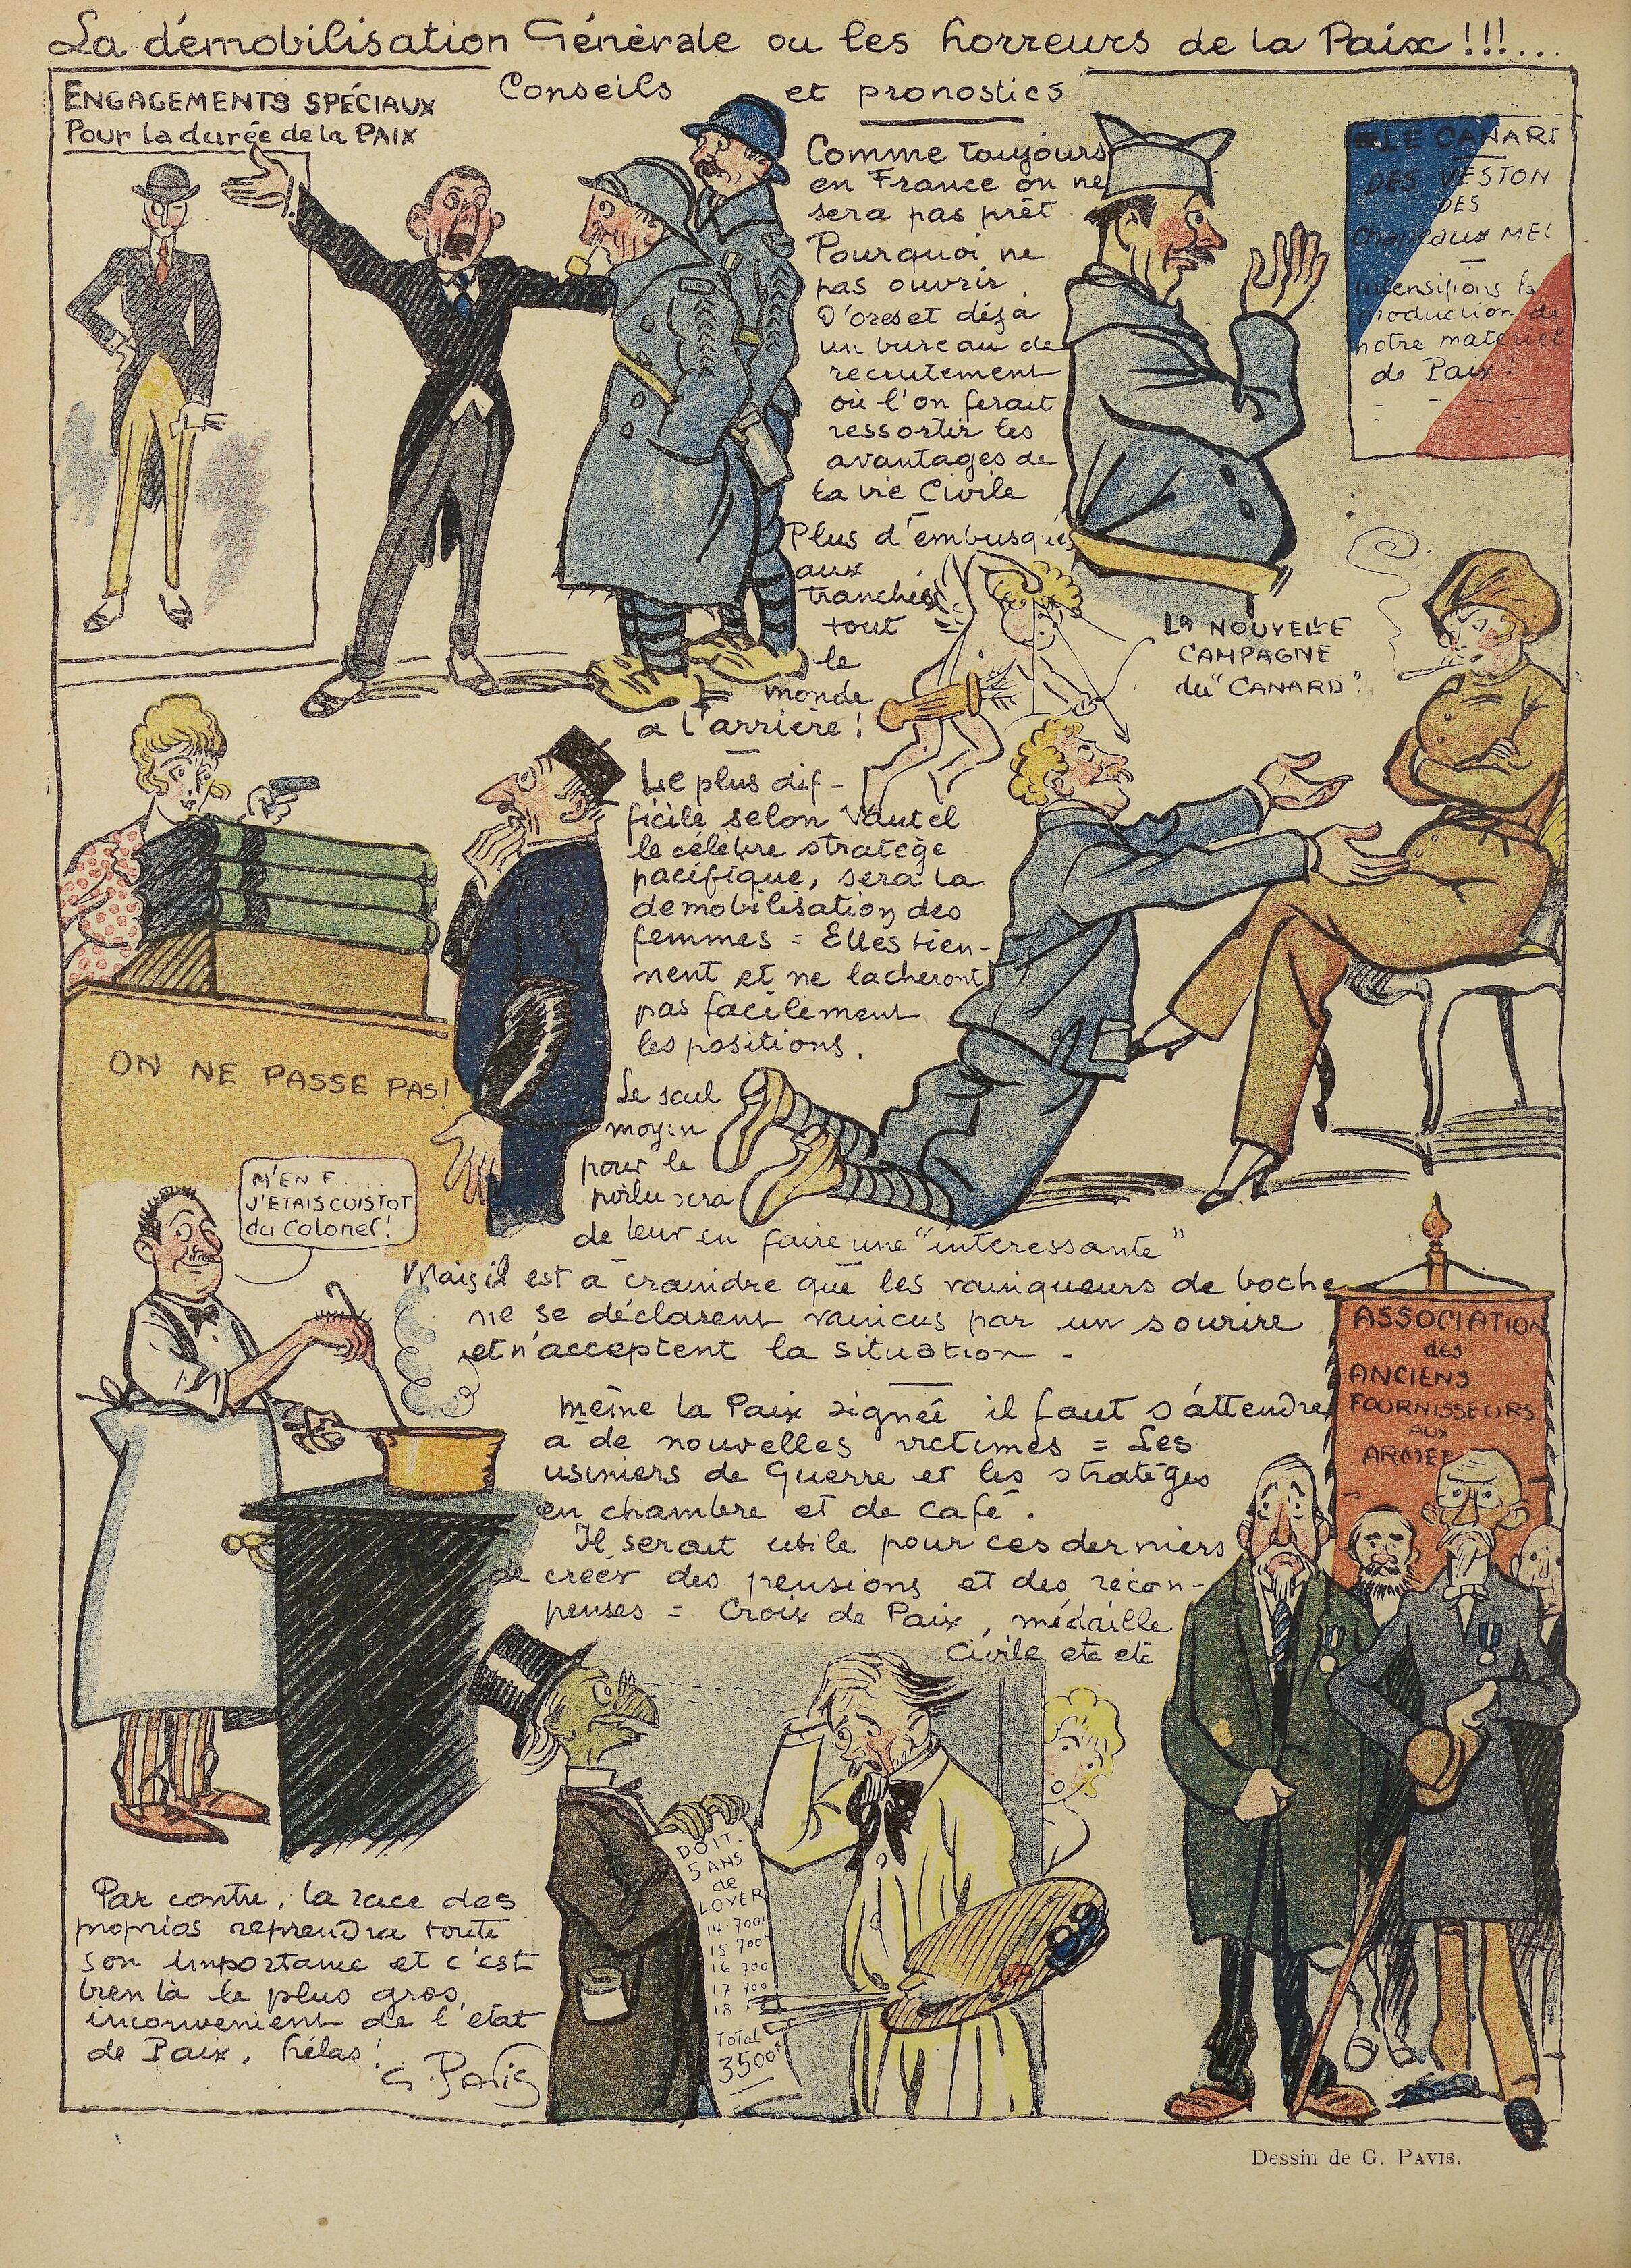 La démobilisation Générale ou les horreurs de la Paix!!!...
Conseils et pronostics
ENGAGEMENTS SPÉCIAUX
Pour la durée de la PAIX
Comme toujours
en France on ne
sera pas prêt.
Pourquoi ne
pas ouvrir
D'ores et déjà
un bureau de
recrutement
où l'on ferait
ressortir les
avantages de
la vie Civile
LE CANARD
DES VESTON
DES
Chapeaux ME
Intensifions la
production de
notre matériel
de Paix!
Plus d'embusqués
aux
tranchées
tout
le
monde
a l'arrière!
LA NOUVELLE
CAMPAGNE
du "CANARD"
Le plus dif-
ficile selon Vautel
le célèbre stratège
pacifique, sera la
demobilisation des
femmes = Elles tien-
nent et ne lacheront
pas facilement
les positions.
ON NE PASSE PAS!
Le seul
moyen
pour le
poilu sera
de leur en faire une "intéressante"
Mais il est à craindre que les vainqueurs de boche
ne se déclarent vaincus par un sourire
et n'acceptent la situation -
M'EN F.....
J'ETAIS CUISTOT
du Colonel!
même la Paix signée il faut s'attendre
à de nouvelles victimes = Les
usiniers de Guerre et les stratèges
en chambre et de café.
Il serait utile pour ces derniers
de créer des pensions et des récom-
penses = Croix de Paix, médaille
Civile etc etc
ASSOCIATION
des
ANCIENS
FOURNISSEURS
AUX
ARMEE
DOIT.
5 ANS
de
LOYER
14 700
15 700
16 700
17 700
18
Total
3500F
Par contre, la race des
proprios reprendra toute
son importance et c'est
bien là le plus gros
inconvenient de l'état
de Paix, hélas!
G. Pavis
Dessin de G. PAVIS.